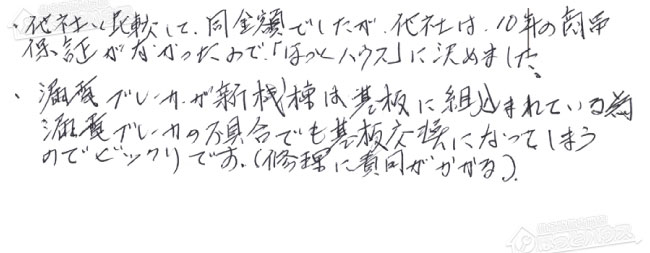 ・他社と比較して、同金額でしたが、他社は、10年の商品
保証がなかったので、「ほっとハウス」に決めました。
・漏電ブレーカが新機種は基板に組込まれている為
漏電ブレーカの不具合でも基板交換になってしまう
のでビックリです。(修理に費用がかかる)